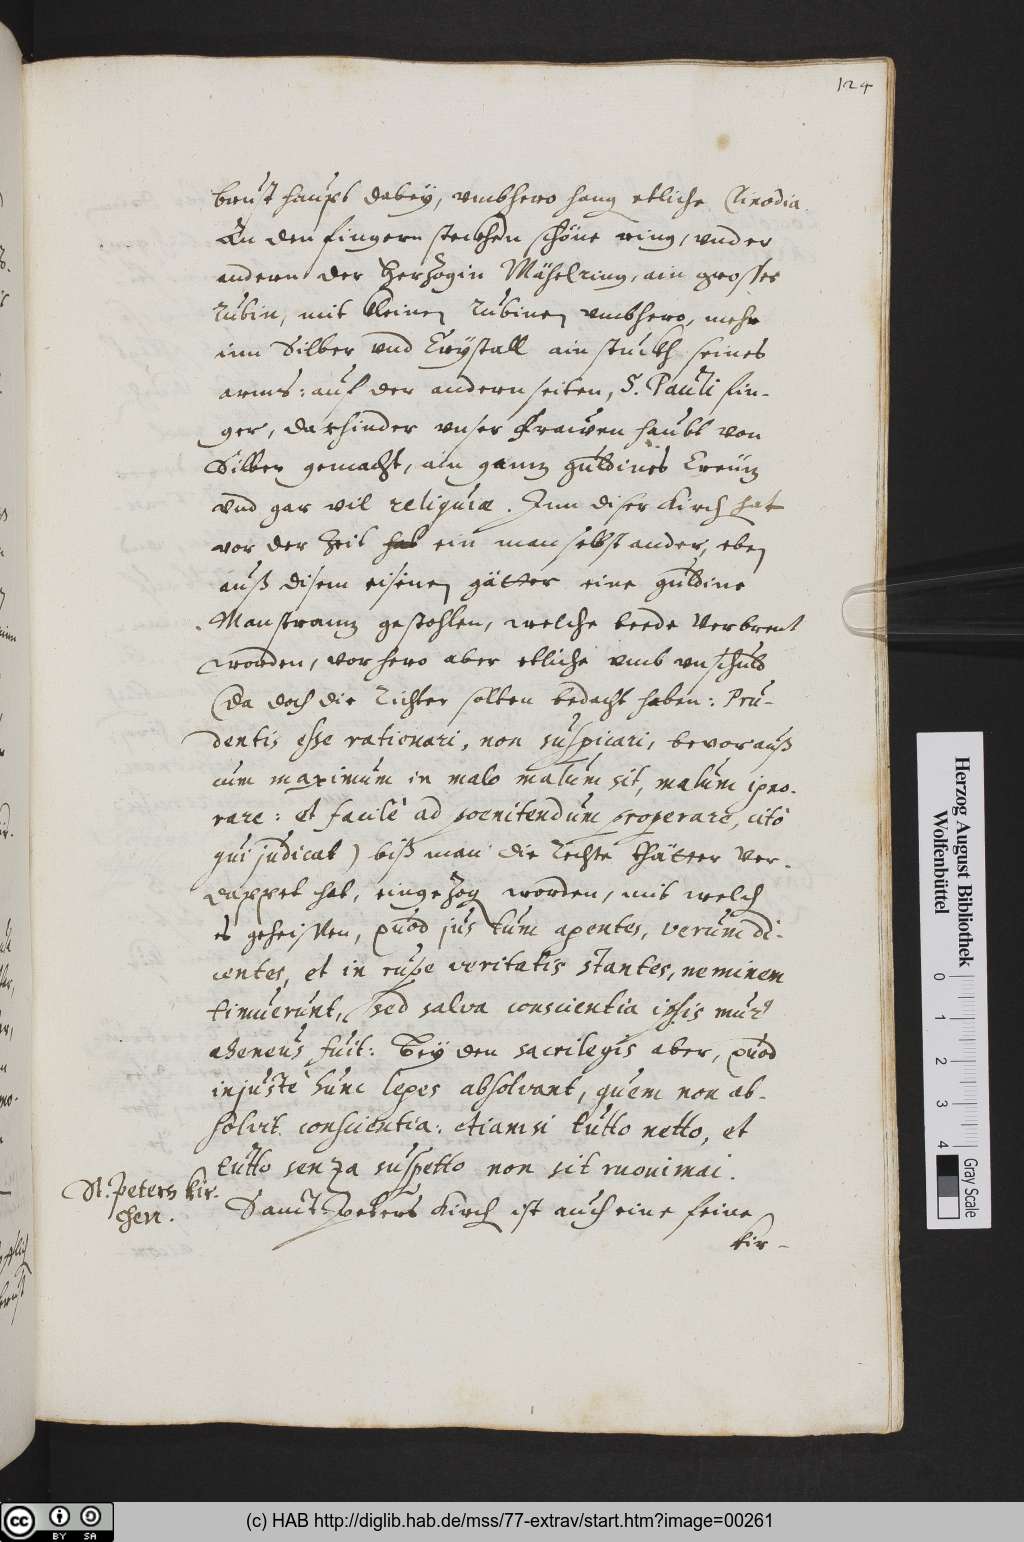 124
brust haupt dabey, vmbhero hang etliche Clinodia.
An den fingern steckhen schöne ring, vnder
andern der Herzogin Mähelring, ain grosser
Rubin, mit kleinen Rubinen vmbhero, mehr
inn Silber vnd Crystall ain stuckh seines
arms: auf der andern seiten, S. Pauli fin-
ger, darhinder vnser Frawen haubt von
Silber gemacht, ain gantz guldines Creutz
vnd gar vil reliquiæ. Inn diser Kirch hat
vor der Zeit hat ein man selbst ander, eben
auß disem eisinen gätter eine guldine
Monstrantz gestohlen, welche beede verbrent
worden, vorhero aber etliche vmb vnschuld
(da doch die Richter solten bedacht haben: Pru-
dentis esse rationari, non suspicari, bevorauß
cum maximum in malo malum sit, malum igno-
rare: et facilè ad poenitendum properare, citò
qui judicat) biß man die rechte thätter ver-
dappet hat, eingezog worden, mit welch
es geheissen, quod jus tum agentes, verum di-
centes, et in rupe veritatis stantes, neminem
timuerunt, sed salva conscientia ipsis mur9
aheneus fuit: Bey den sacrilegis aber, quod
injustè hunc leges absolvant, quem non ab-
solvit conscientia: etiamsi tutto netto, et
tutto senza suspetto non sit
St. Peters kir-
chen.
Sanct Peters Kirch ist auch eine feine
kir-
Herzog August Bibliothek
Wolfenbüttel
0 1 2 3 4
Gray Scale
cc BY SA
(c) HAB http://diglib.hab.de/mss/77-extrav/start.htm?image=00261